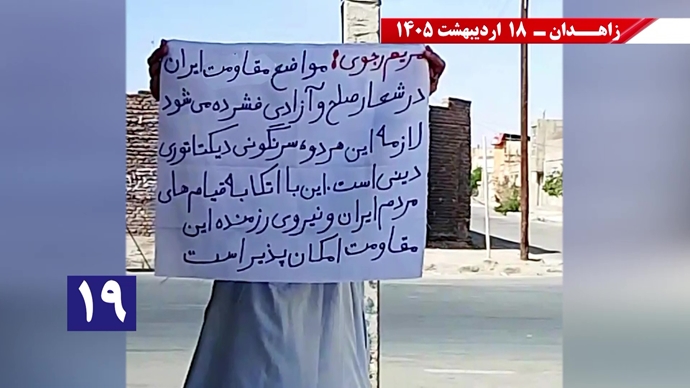 زاهـدان ـ ۱۸ اردیبهشت ۱۴۰۵
مریم رجوی: مواضع مقاومت ایران
در شعار صلح و آزادی فشرده می‌شود
لازمه این هر دو، سرنگونی دیکتاتوری
دینی است. این با اتکا به قیام‌های
مردم ایران و نیروی رزمنده این
مقاومت امکان پذیر است
۱۹